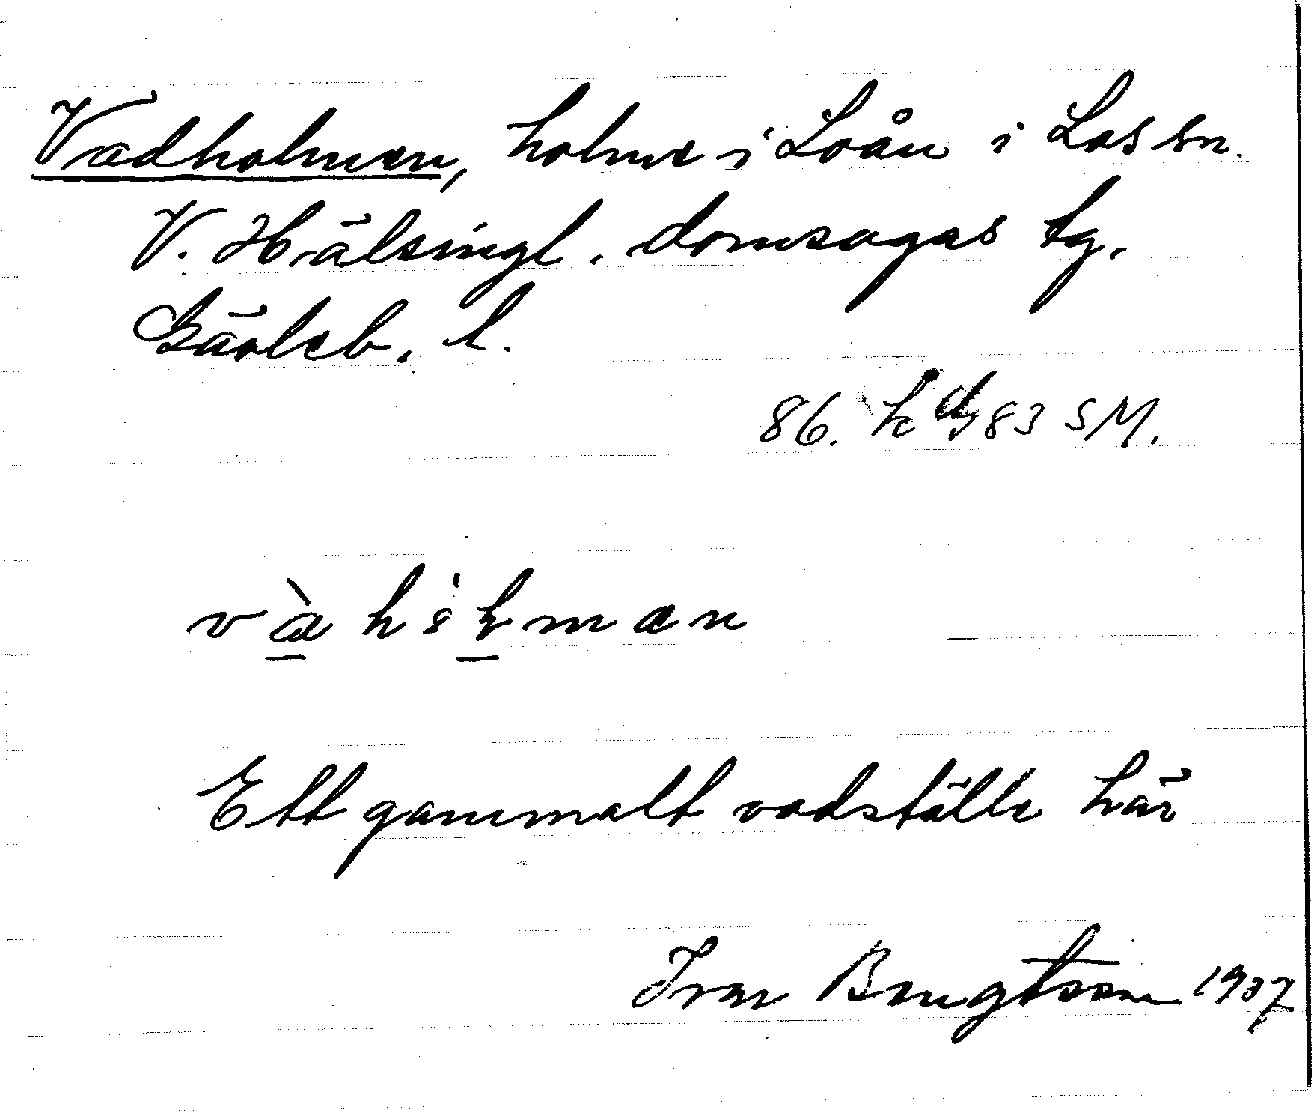 Vadholmen, holme i Loån i Los sn.
V. Hälsingl. domsagas tg.
Gävleb. l.
86. SM.
Ett gammalt vadställe här
Ivar Bengtsson 1937